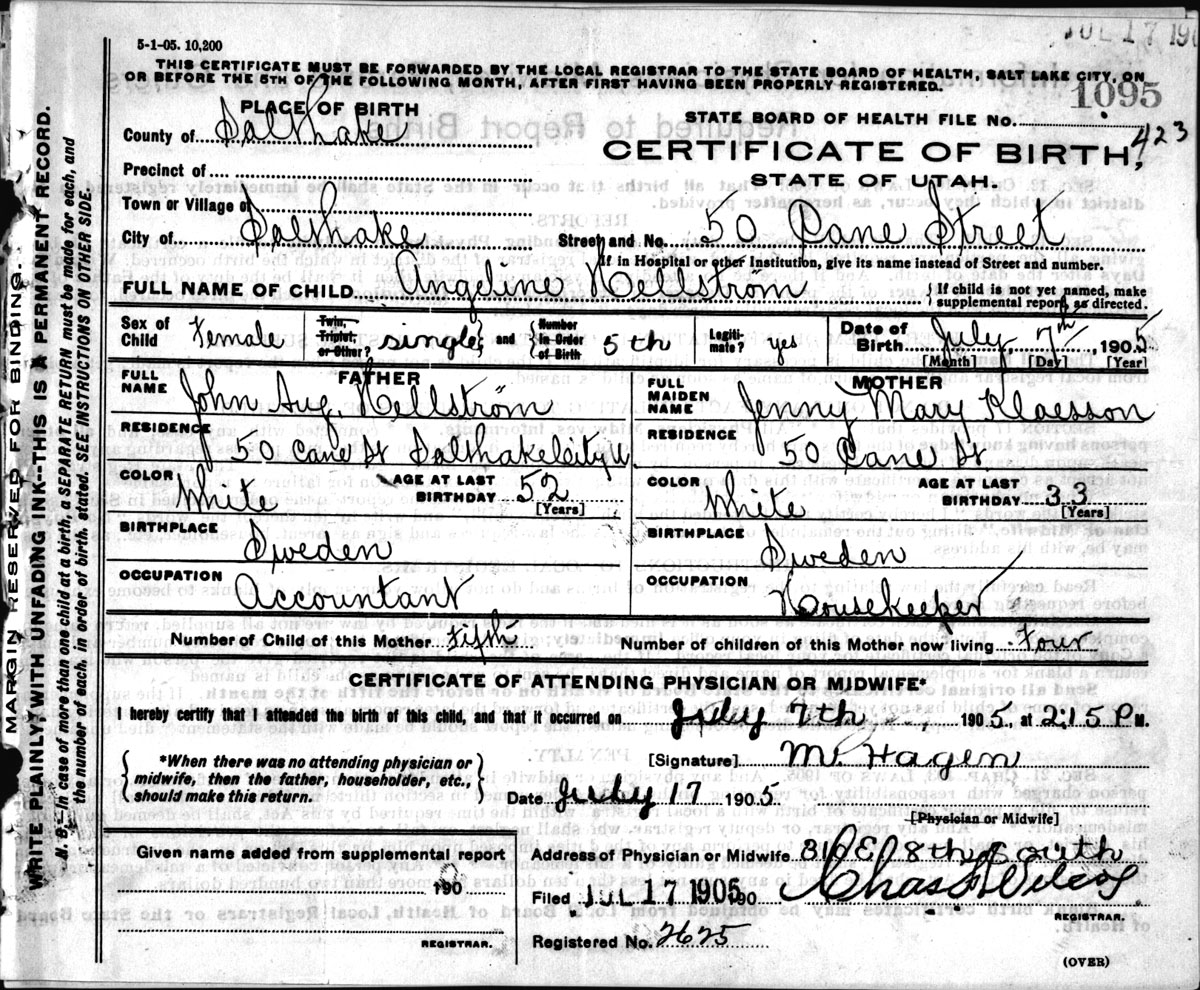 5-1-05. 10,200
JUL 17 190
THIS CERTIFICATE MUST BE FORWARDED BY THE LOCAL REGISTRAR TO THE STATE BOARD OF HEALTH, SALT LAKE CITY, ON
OR BEFORE THE 5TH OF THE FOLLOWING MONTH, AFTER FIRST HAVING BEEN PROPERLY REGISTERED.
1095
PLACE OF BIRTH
STATE BOARD OF HEALTH FILE No.
423
County of Salt Lake
CERTIFICATE OF BIRTH,
Precinct of
STATE OF UTAH.
Town or Village of
City of Salt Lake Street and No. 50 Cane Street
If in Hospital or other Institution, give its name instead of Street and number.
FULL NAME OF CHILD Angeline Hellström { If child is not yet named, make supplemental report as directed.
Sex of Child Female Twin, Triplet, or Other? single } and { Number in Order of Birth 5th Legitimate? yes Date of Birth July 7th, 1905
[Month] [Day] [Year]
FATHER MOTHER
FULL NAME John Aug. Hellström FULL MAIDEN NAME Jenny Mary Klaesson
RESIDENCE 50 Cane St Salt Lake City U. RESIDENCE 50 Cane St
COLOR White AGE AT LAST BIRTHDAY 52 [Years] COLOR White AGE AT LAST BIRTHDAY 33 [Years]
BIRTHPLACE Sweden BIRTHPLACE Sweden
OCCUPATION Accountant OCCUPATION Housekeeper
Number of Child of this Mother Fifth Number of children of this Mother now living Four
CERTIFICATE OF ATTENDING PHYSICIAN OR MIDWIFE*
I hereby certify that I attended the birth of this child, and that it occurred on July 7th 1905, at 215 P M.
{ *When there was no attending physician or midwife, then the father, householder, etc., should make this return. }
[Signature] M. Hagen
Date July 17 1905
[Physician or Midwife]
Given name added from supplemental report
190
REGISTRAR.
Address of Physician or Midwife 310 E 8th South
Filed JUL 17 1905 190 Chas. F. Wilcox
REGISTRAR.
Registered No. 2625
(OVER)
MARGIN RESERVED FOR BINDING.
WRITE PLAINLY, WITH UNFADING INK--THIS IS A PERMANENT RECORD.
N. B.--In case of more than one child at a birth, a SEPARATE RETURN must be made for each, and
the number of each, in order of birth, stated. SEE INSTRUCTIONS ON OTHER SIDE.